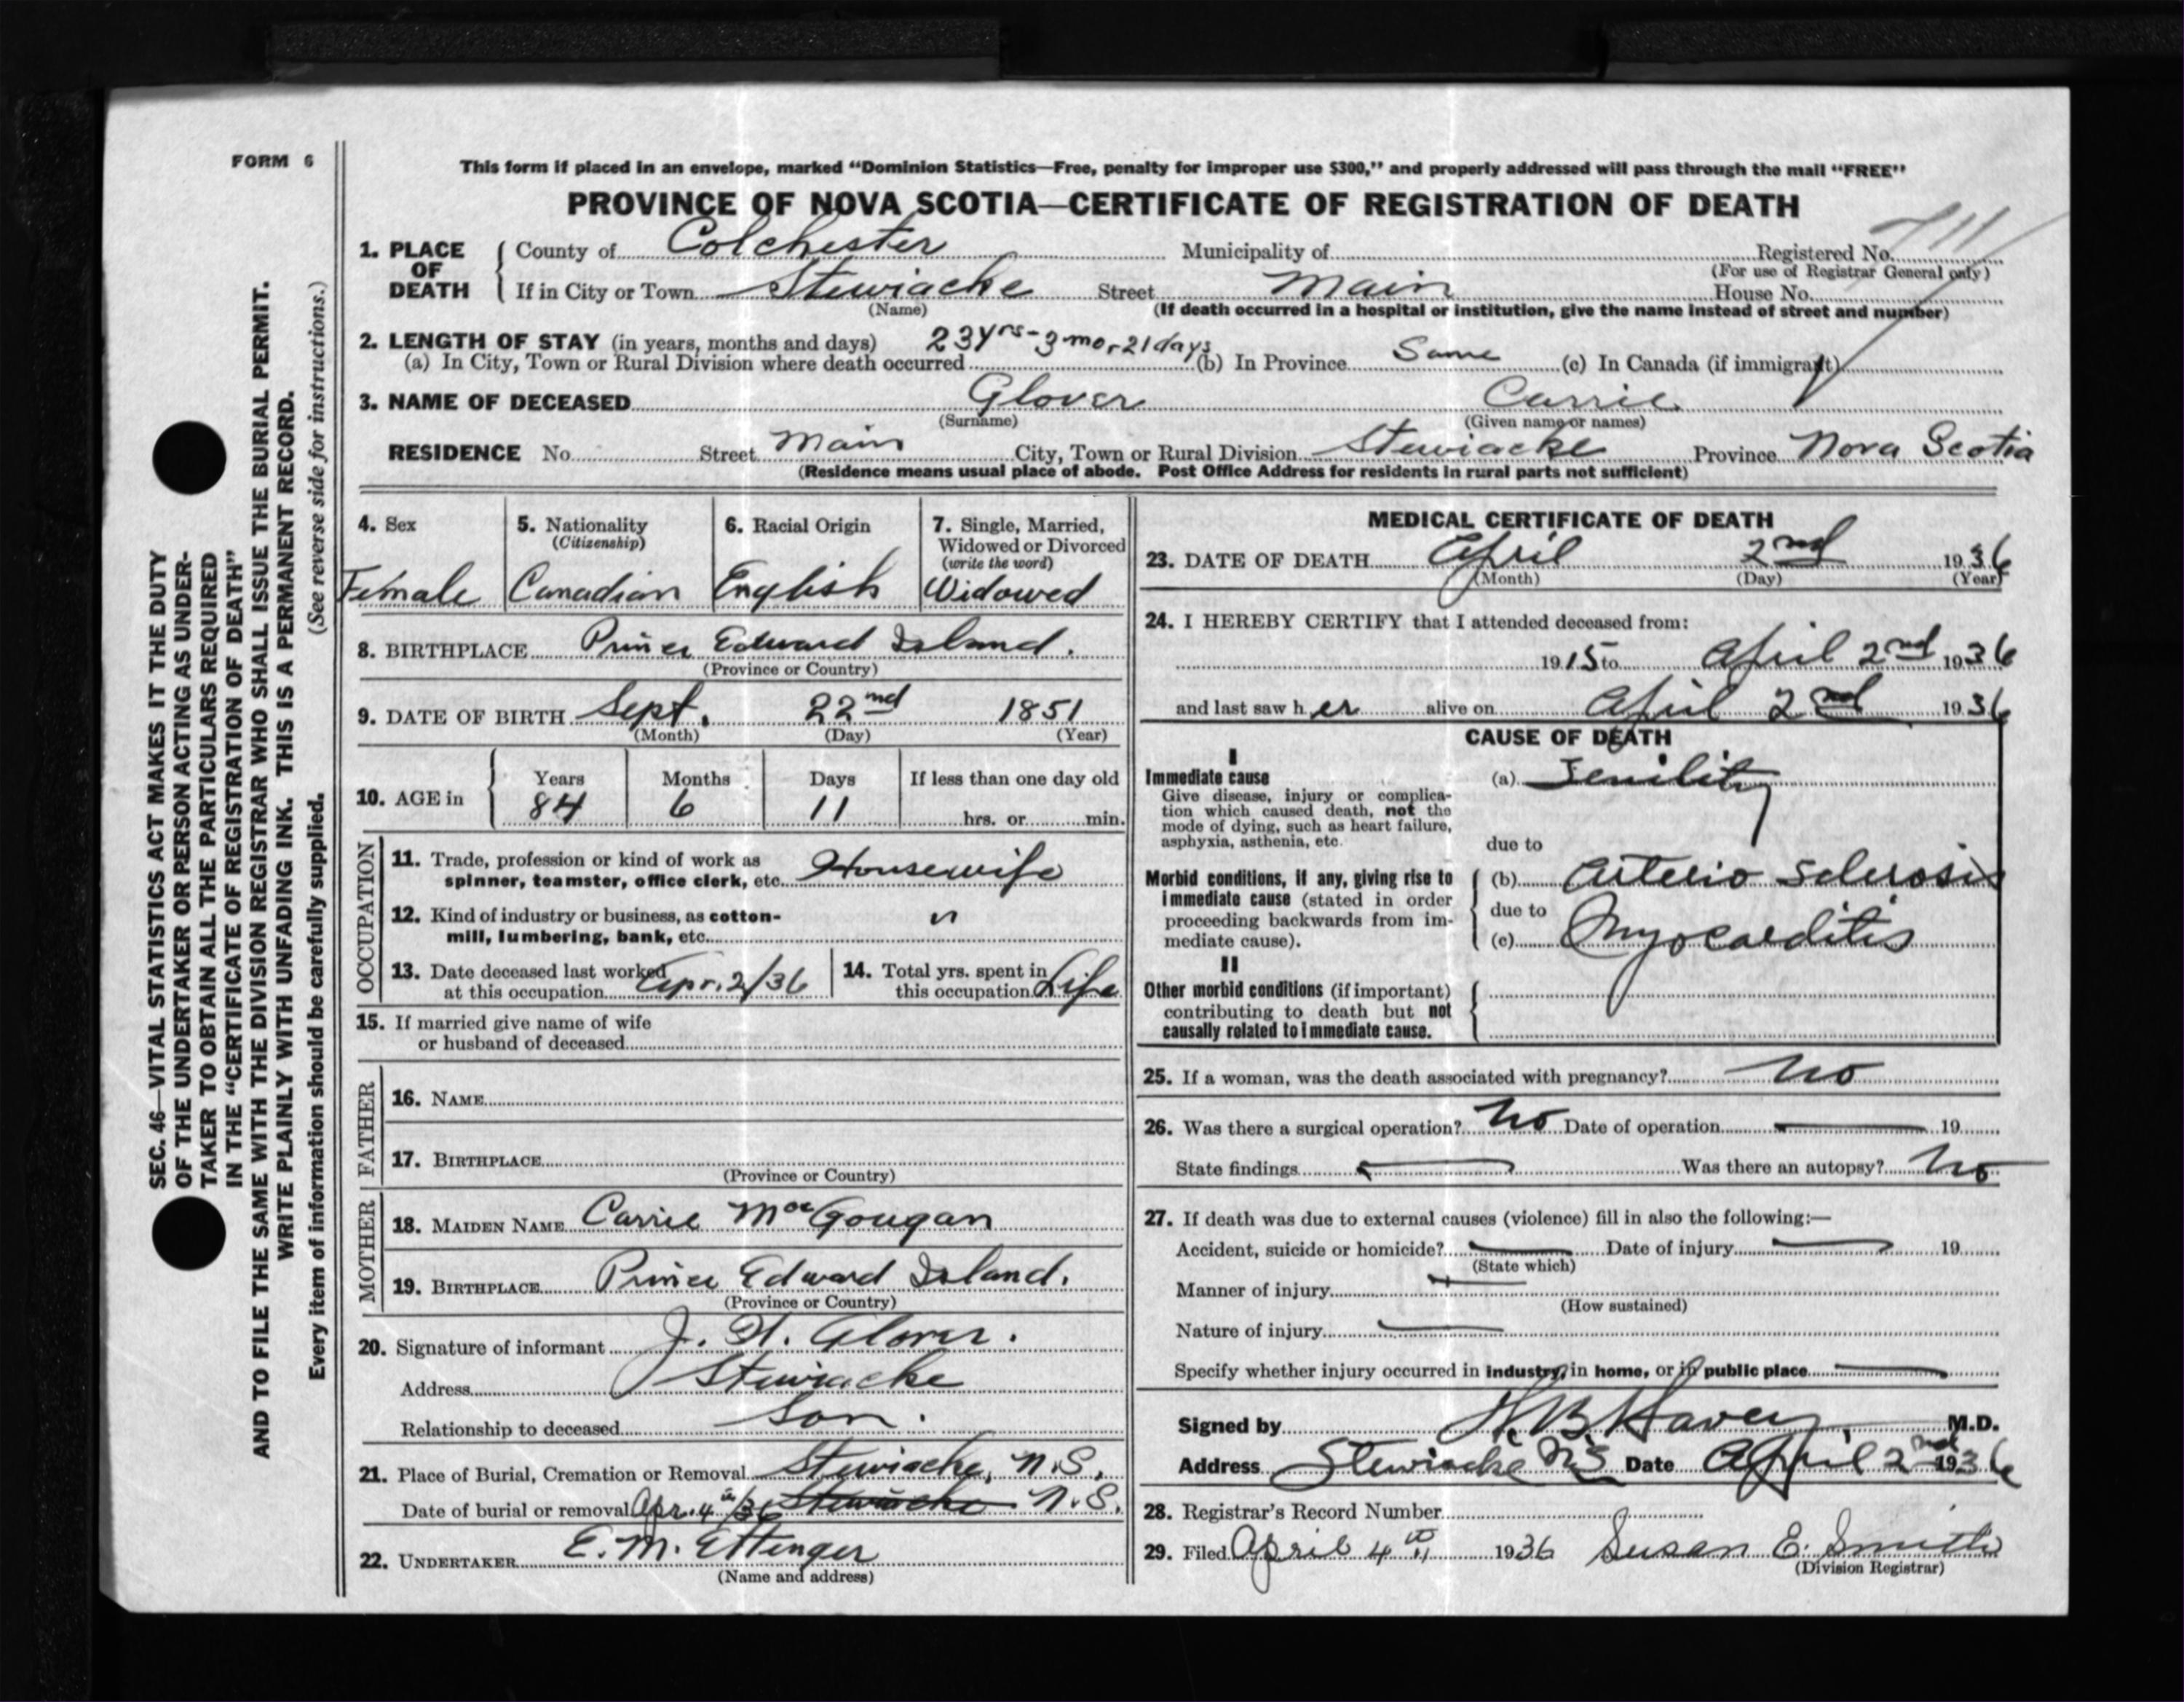 FORM 6
This form if placed in an envelope, marked “Dominion Statistics—Free, penalty for improper use $300,” and properly addressed will pass through the mail “FREE”
PROVINCE OF NOVA SCOTIA—CERTIFICATE OF REGISTRATION OF DEATH
1. PLACE OF DEATH County of Colchester Municipality of Registered No. 711
(For use of Registrar General only)
If in City or Town Stewiacke Street Main House No.
(Name) (If death occurred in a hospital or institution, give the name instead of street and number)
2. LENGTH OF STAY (in years, months and days) 23 yrs - 3 mo - 21 days
(a) In City, Town or Rural Division where death occurred (b) In Province Same (c) In Canada (if immigrant)
3. NAME OF DECEASED Glover Carrie
(Surname) (Given name or names)
RESIDENCE No. Street Main City, Town or Rural Division Stewiacke Province Nova Scotia
(Residence means usual place of abode. Post Office Address for residents in rural parts not sufficient)
4. Sex 5. Nationality 6. Racial Origin 7. Single, Married,
(Citizenship) Widowed or Divorced
(write the word)
Female Canadian English Widowed
8. BIRTHPLACE Prince Edward Island.
(Province or Country)
9. DATE OF BIRTH Sept. 22nd 1851
(Month) (Day) (Year)
10. AGE in Years Months Days If less than one day old
84 6 11 hrs. or min.
OCCUPATION
11. Trade, profession or kind of work as
spinner, teamster, office clerk, etc. Housewife
12. Kind of industry or business, as cotton-
mill, lumbering, bank, etc. "
13. Date deceased last worked
at this occupation Apr. 2/36
14. Total yrs. spent in
this occupation Life
15. If married give name of wife
or husband of deceased
FATHER
16. NAME
17. BIRTHPLACE
(Province or Country)
MOTHER
18. MAIDEN NAME Carrie MacGougan
19. BIRTHPLACE Prince Edward Island.
(Province or Country)
20. Signature of informant J. H. Glover.
Address Stewiacke
Relationship to deceased Son.
21. Place of Burial, Cremation or Removal Stewiacke, N.S.
Date of burial or removal Apr. 4th/36 Stewiacke N.S.
22. UNDERTAKER E. M. Ettinger
(Name and address)
MEDICAL CERTIFICATE OF DEATH
23. DATE OF DEATH April 2nd 1936
(Month) (Day) (Year)
24. I HEREBY CERTIFY that I attended deceased from:
1915 to April 2nd 1936
and last saw her alive on April 2nd 1936
CAUSE OF DEATH
I
Immediate cause (a) Senility
Give disease, injury or complica-
tion which caused death, not the
mode of dying, such as heart failure,
asphyxia, asthenia, etc.
due to
Morbid conditions, if any, giving rise to (b) Arterio Sclerosis
immediate cause (stated in order due to
proceeding backwards from im-
mediate cause). (c) Myocarditis
II
Other morbid conditions (if important)
contributing to death but not
causally related to immediate cause.
25. If a woman, was the death associated with pregnancy? No
26. Was there a surgical operation? No Date of operation 19
State findings Was there an autopsy? No
27. If death was due to external causes (violence) fill in also the following:—
Accident, suicide or homicide? Date of injury 19
(State which)
Manner of injury
(How sustained)
Nature of injury
Specify whether injury occurred in industry, in home, or in public place
Signed by H. B. Havey M.D.
Address Stewiacke N.S Date April 2nd 1936
28. Registrar’s Record Number
29. Filed April 4th 1936 Susan E. Smith
(Division Registrar)
SEC. 46—VITAL STATISTICS ACT MAKES IT THE DUTY
OF THE UNDERTAKER OR PERSON ACTING AS UNDER-
TAKER TO OBTAIN ALL THE PARTICULARS REQUIRED
IN THE “CERTIFICATE OF REGISTRATION OF DEATH”
AND TO FILE THE SAME WITH THE DIVISION REGISTRAR WHO SHALL ISSUE THE BURIAL PERMIT.
WRITE PLAINLY WITH UNFADING INK. THIS IS A PERMANENT RECORD.
Every item of information should be carefully supplied. (See reverse side for instructions.)